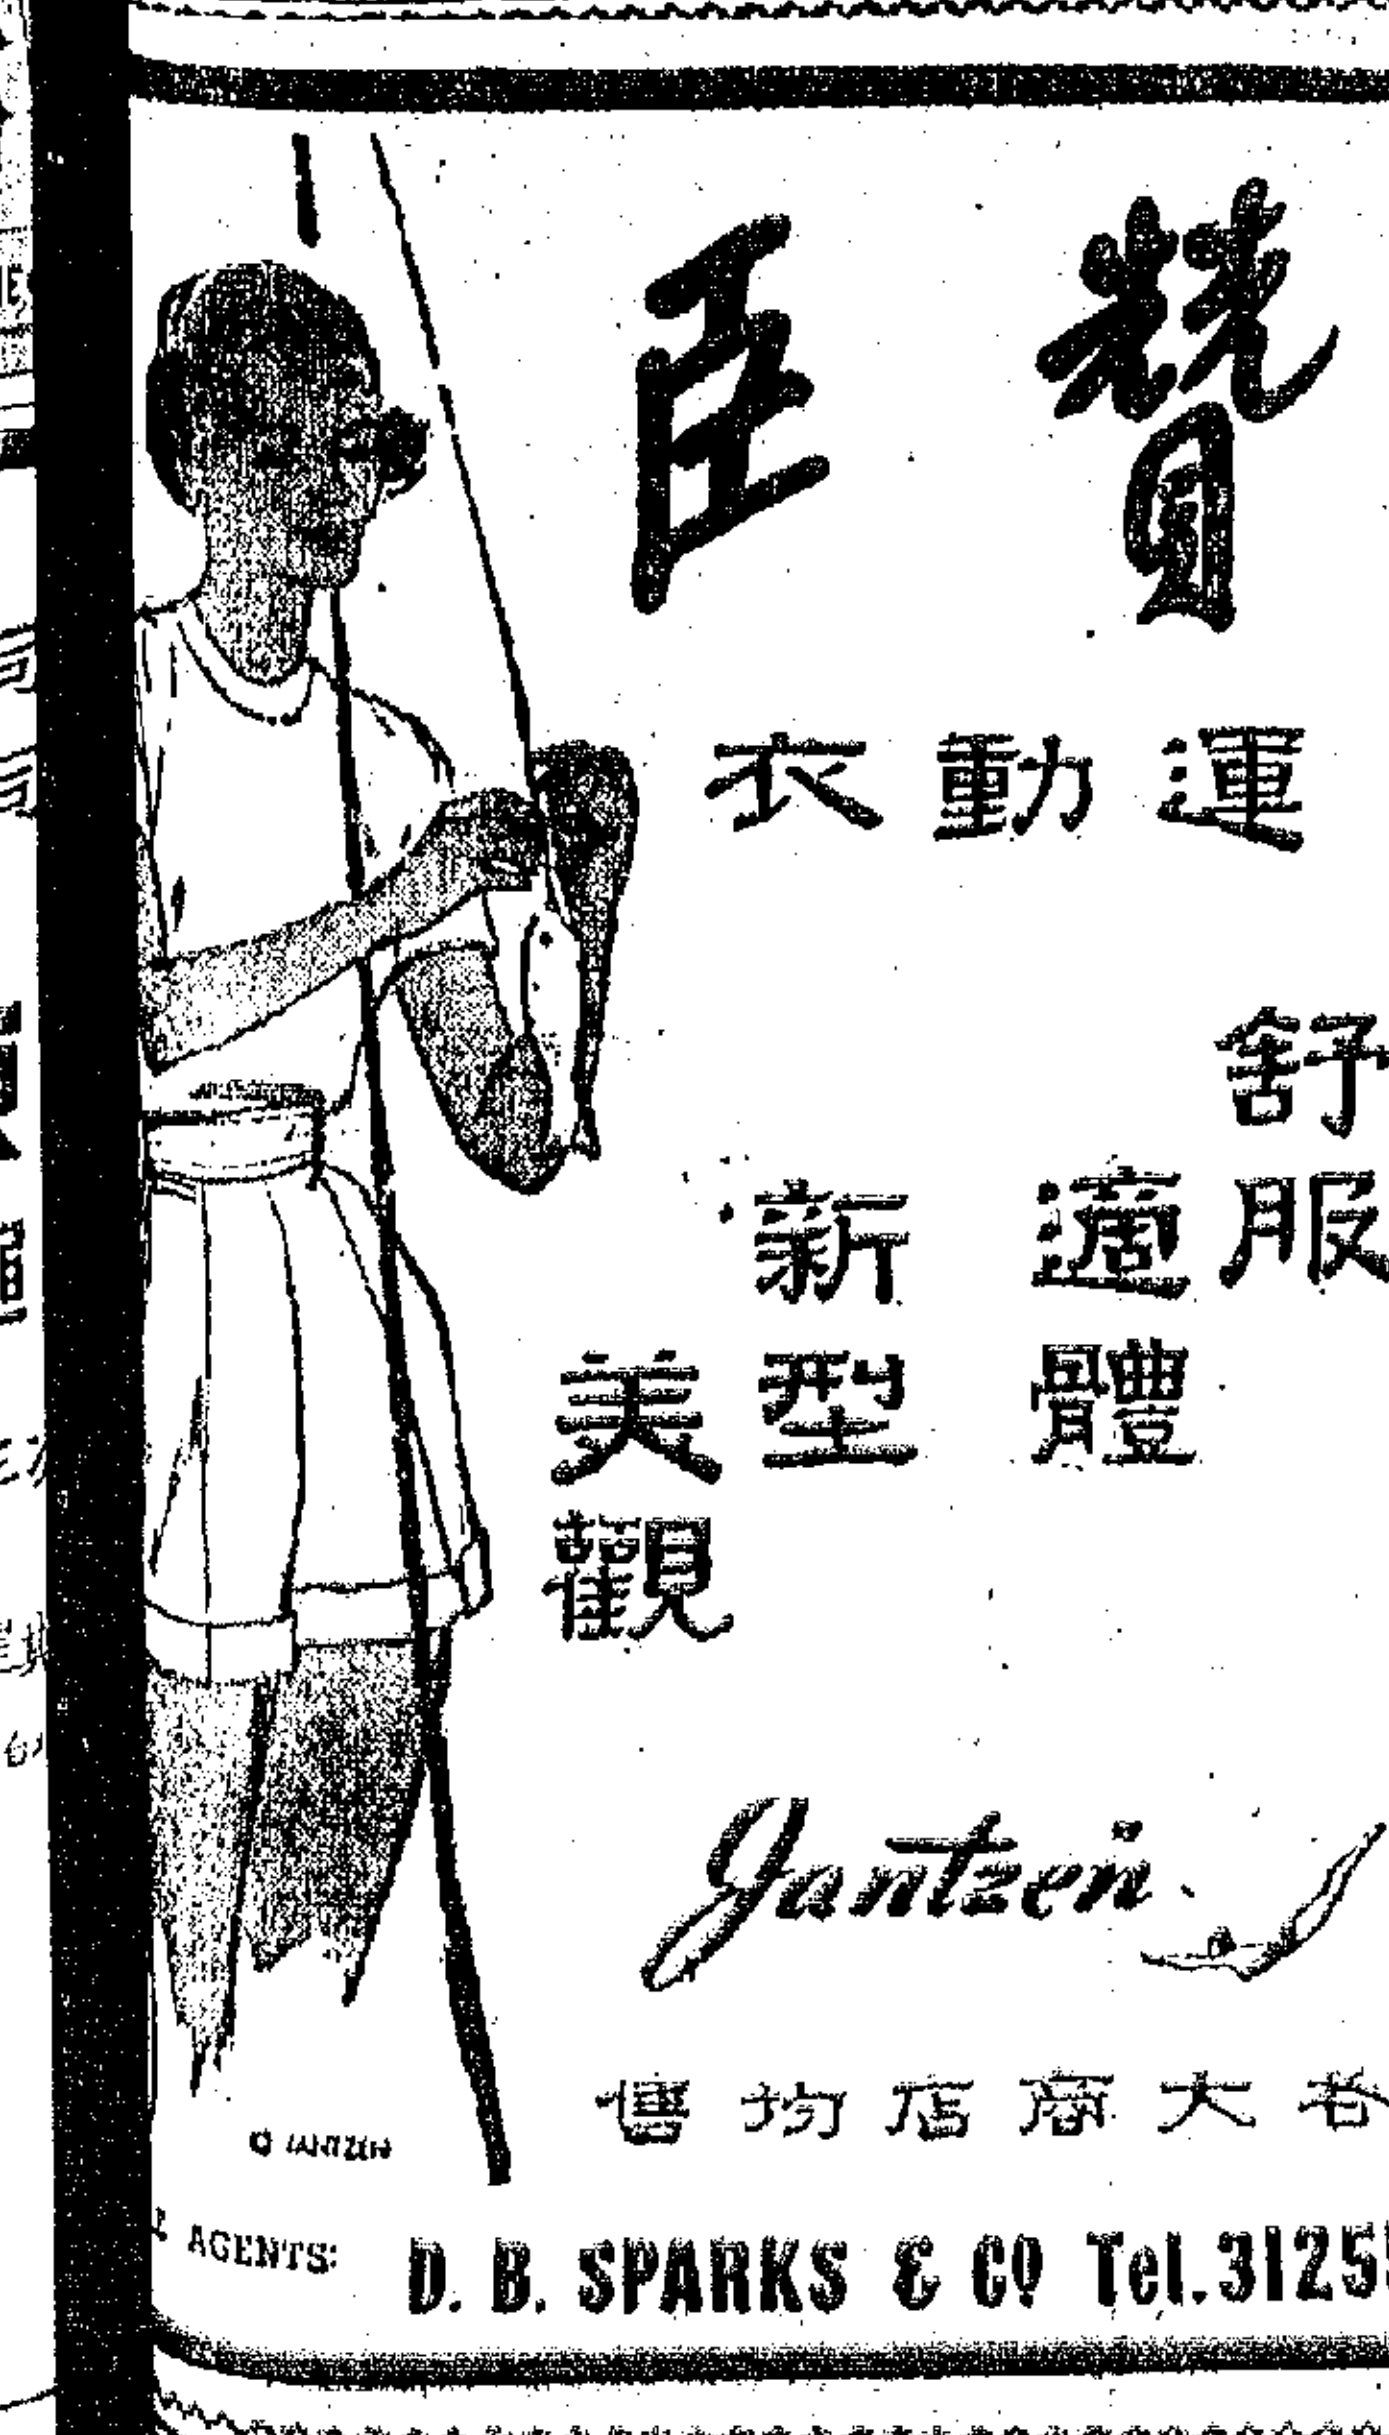 贊臣
運動衣
舒服
適體
新型
美觀
Jantzen
者大商店均售
© JANTZEN
AGENTS:
D. B. SPARKS & Co Tel. 3125